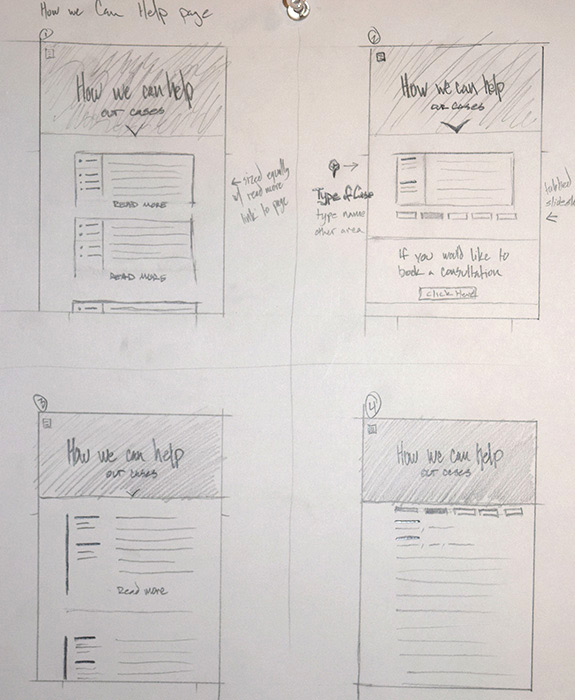 How we Can Help page
1
How we can help
our cases
READ MORE
READ MORE
← sized equally
w/ read more
link to page
2
How we can help
our cases
Type of Case
type name
other area
tabbed
If you would like to
book a consultation
Click Here!
3
How we can help
our cases
Read more
4
How we can help
our cases